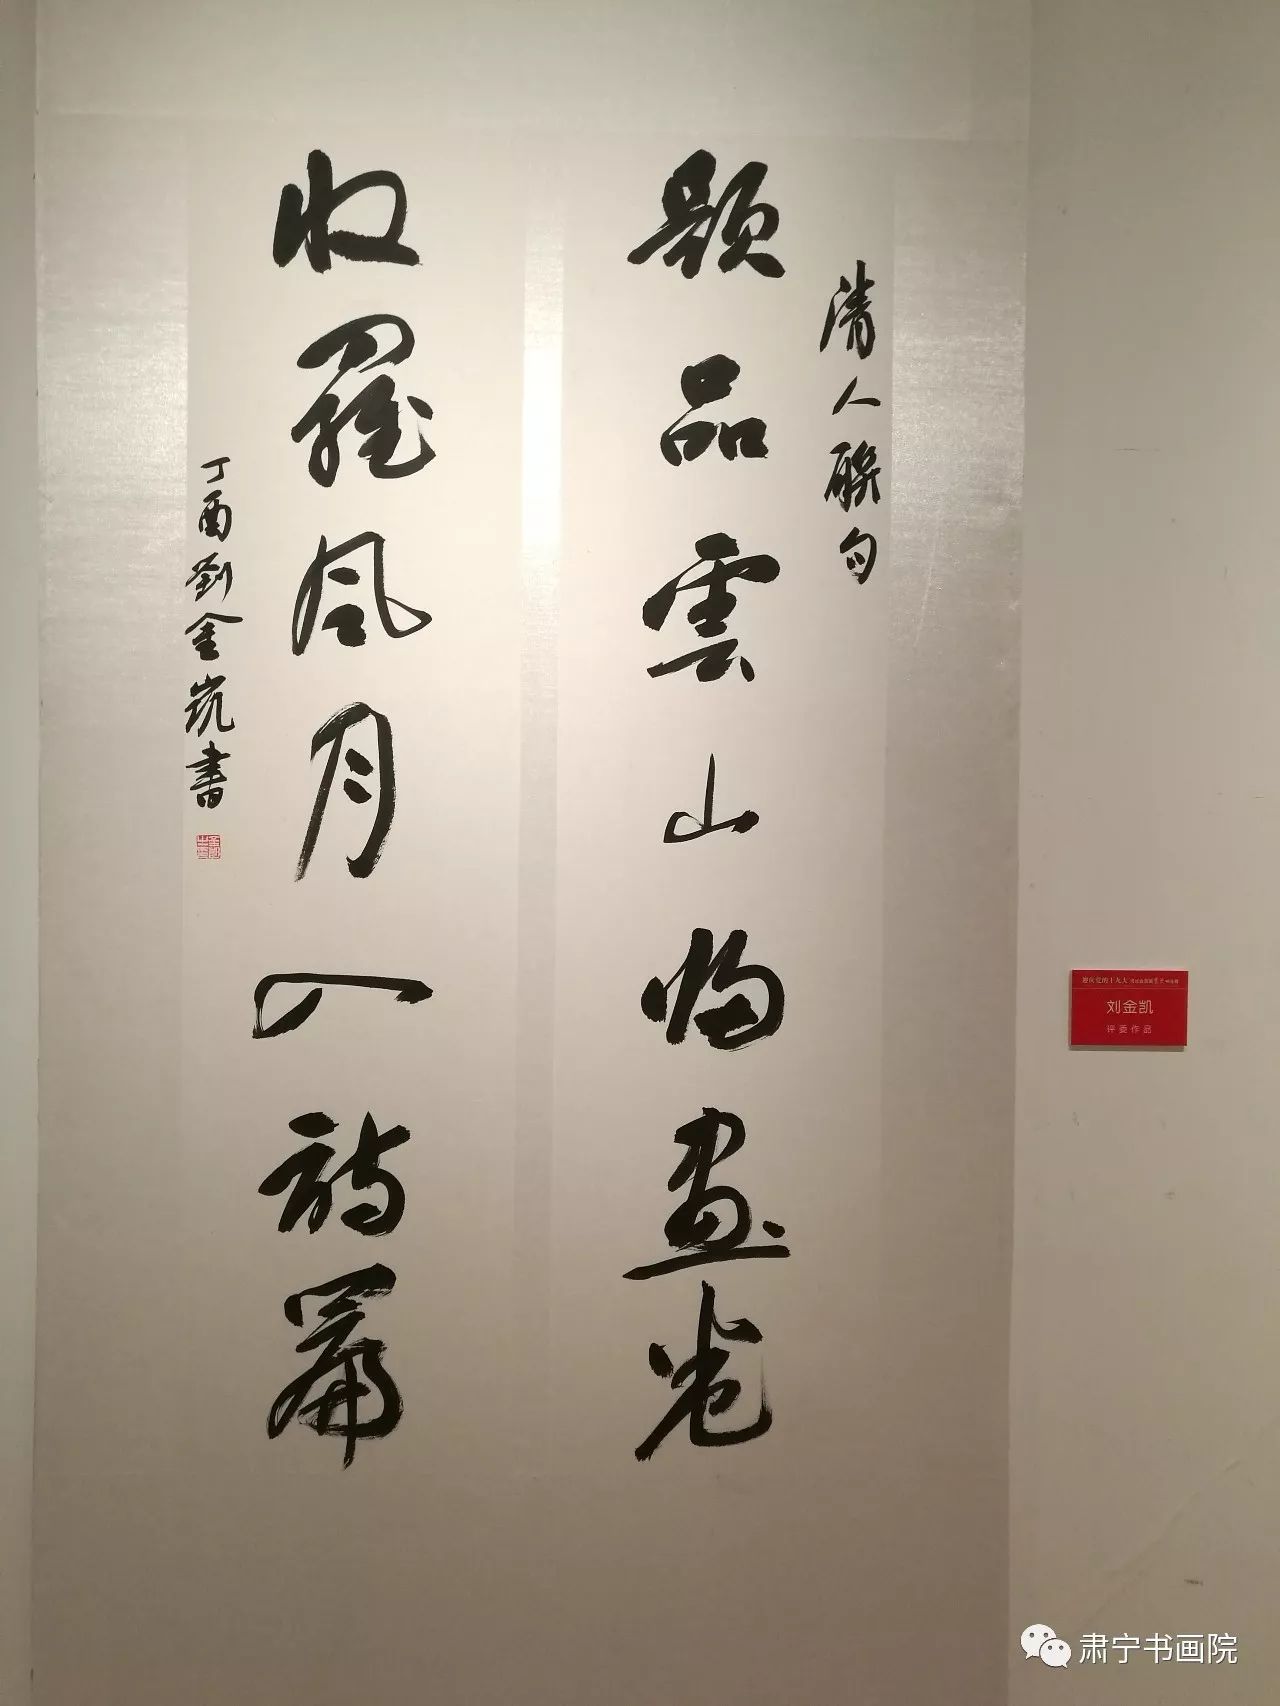 清人联句
题品雲山归画卷
收罗风月入诗篇
丁酉劉金凯書
迎庆党的十九大
刘金凯
评委作品
肃宁书画院